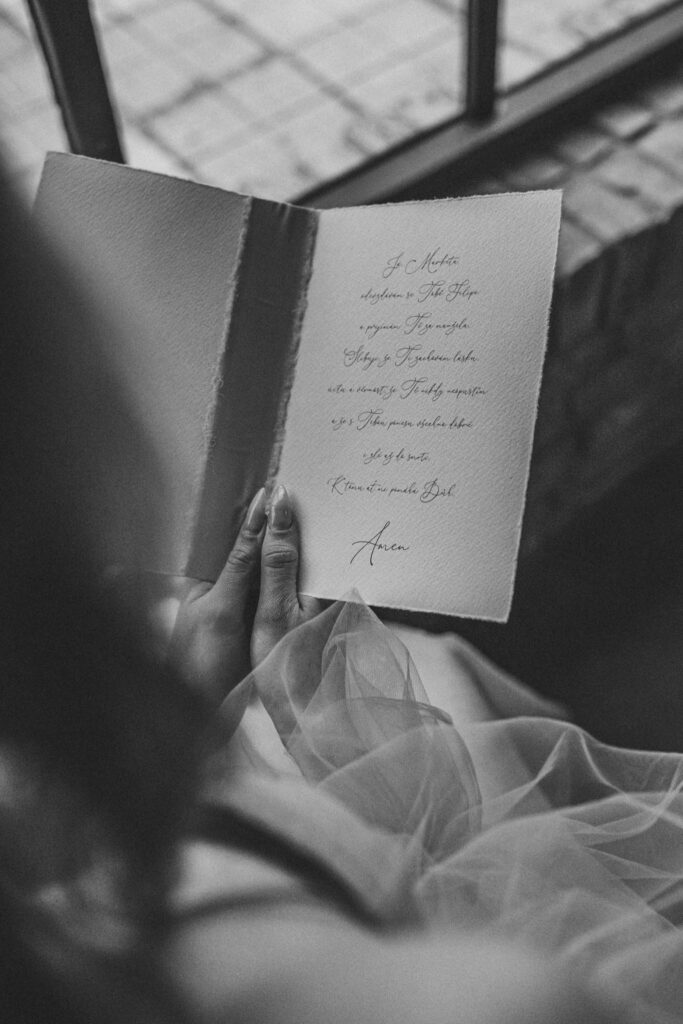 Já Markéta
odevzdávám se Tobě Filipe
a přijímám Tě za manžela.
Slibuji, že Ti zachovám lásku
úctu a věrnost, že Tě nikdy neopustím
a že s Tebou ponesu všechno dobré
i zlé až do smrti.
K tomu ať mi pomáhá Bůh.
Amen